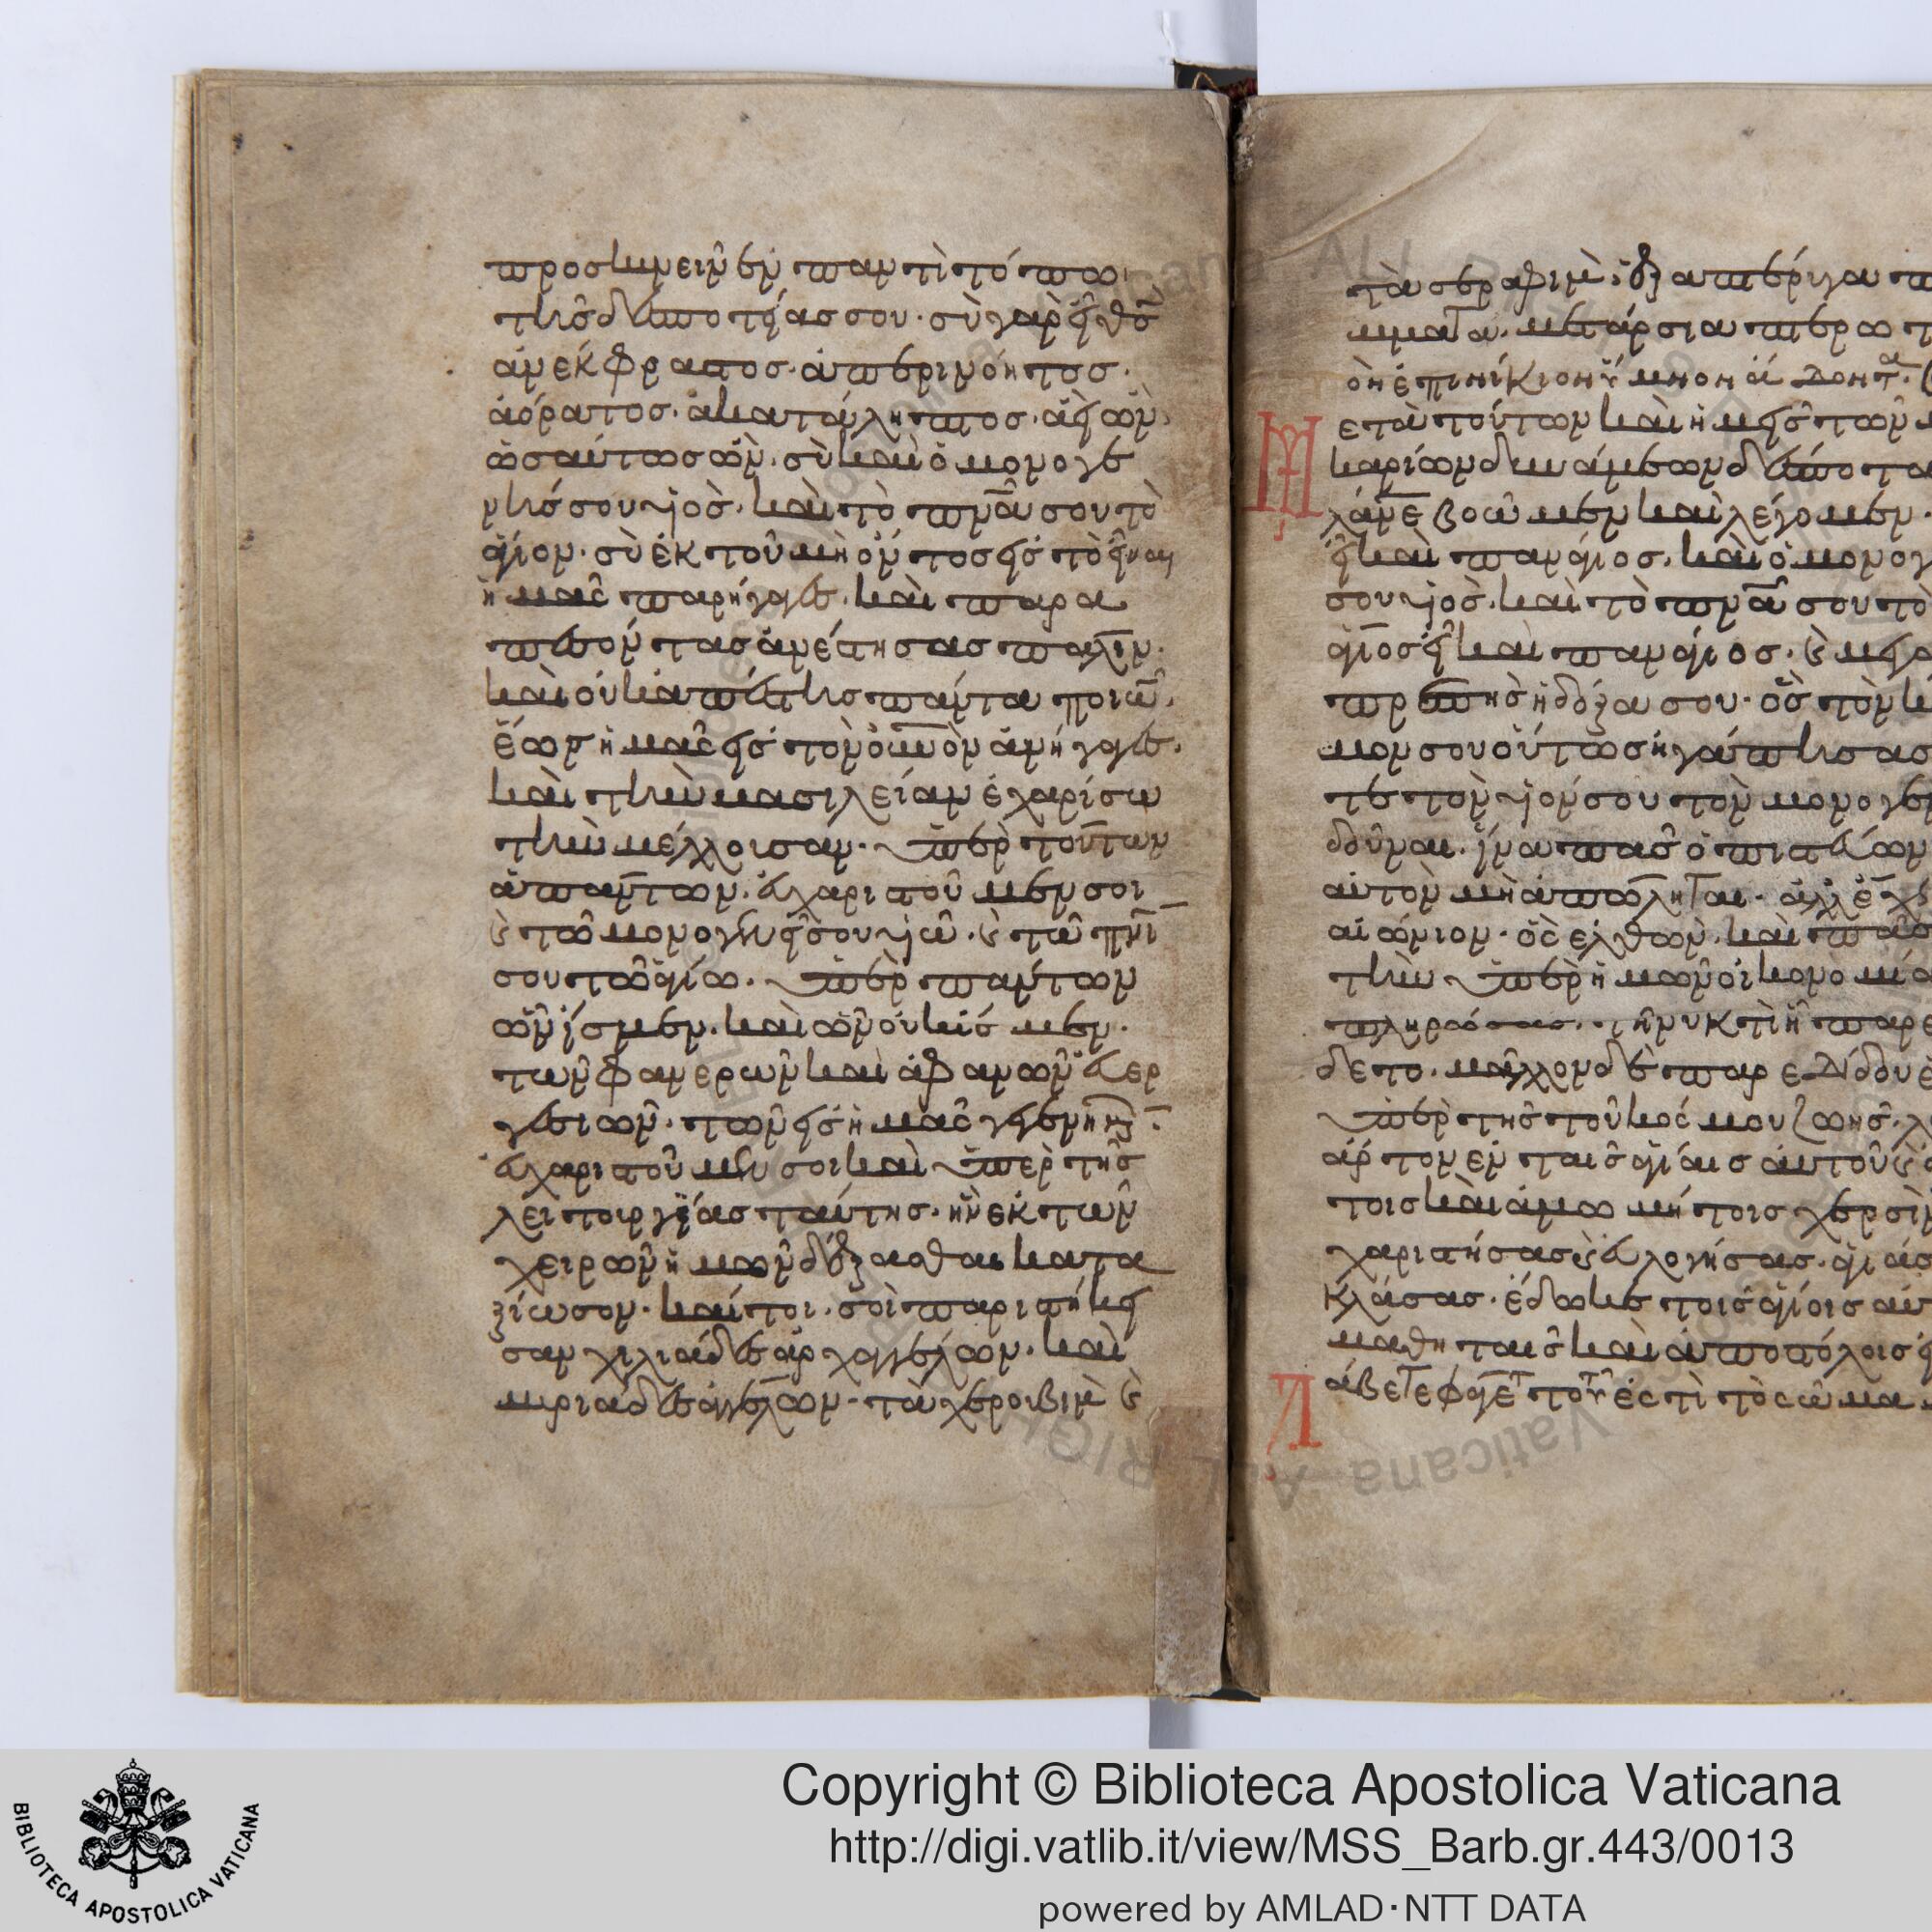 προσκυνεῖν ἐν παντὶ τό πω
τῆσ δεσποτείασ σου· σὺ γὰρ εἶ θσ
ἀνέκφραστοσ· ἀπερινόητοσ·
ἀόρατοσ· ἀκατάληπτοσ· ἀεὶ ὢν·
ὡσαύτωσ ὢν· σὺ καὶ ὁ μονογε
νήσ σου υἱὸσ· καὶ τὸ πνα σου τὸ
ἅγιον· σὺ ἐκ τοῦ μὴ ὄντοσ εἰσ τὸ εἶναι
ἡμᾶσ παρήγαγεσ· καὶ παρα
πεσόντασ ἀνέστησασ πάλιν·
καὶ οὐκ ἀπέστησ πάντα ποιῶν·
ἕωσ ἡμᾶσ εἰσ τὸν οὐνὸν ἀνήγαγεσ·
καὶ τὴν βασιλείαν ἐχαρίσω
τὴν μέλλουσαν· ὑπὲρ τούτων
ἁπάντων· εὐχαριστοῦμέν σοι
ς τῶ μονογενεῖ σου υἱῶ· ς τῶ πνι
σου τῶ ἁγίω· ὑπὲρ πάντων
ὧν ἴσμεν· καὶ ὧν οὐκ ἴσμεν·
τῶν φανερῶν καὶ ἀφανῶν εὐερ
γεσιῶν· τῶν εἰσ ἡμᾶσ γεγενημν·
εὐχαριστοῦμέν σοι καὶ ὑπὲρ τῆσ
λειτουργίασ ταύτησ· ἣν ἐκ τῶν
χειρῶν ἡμῶν δέξασθαι κατα
ξίωσον· καίτοι· σοὶ παριστήκει
σαν χιλιάδεσ ἀρχαγγέλων· καὶ
μυριάδεσ ἀγγέλων· τὰ χερουβὶμ ς
τὰ σεραφιμ· ἑξαπτέρυγα π
μματα· μετάρσια πτερωτ
ὸν ἐπινίκιον ὕμνον ἄδοντα·
Μετὰ τούτων καὶ ἡμεῖσ τῶν μ
καρίων δυνάμεων δέσποτα
λάνε βοῶμεν καὶ λέγομεν·
εἶ καὶ πανάγιοσ· καὶ ὁ μονογ
σου υἱὸσ· καὶ τὸ πνα σου τὸ
ἅγιοσ εἶ καὶ πανάγιοσ· ς μεγα
πρεπὴσ ἡ δόξα σου· ὃσ τὸν κό
μον σου οὕτωσ ἠγάπησασ
τε τὸν υἱόν σου τὸν μονογεν
δοῦναι· ἵνα πᾶσ ὁ πιστεύων
αὐτὸν μὴ ἀπόληται· ἀλλ ἔχ
αἰώνιον· ὃσ ἐλθὼν· καὶ πᾶσ
τὴν ὑπὲρ ἡμῶν οἰκονομία
πληρώσασ· τῆ νυκτὶ ἧ παρε
δετο· μᾶλλον δὲ παρεδίδου ἑ
ὑπὲρ τῆσ τοῦ κόσμου ζωῆσ· λ
ἄρτον ἐν ταῖσ ἁγίαισ αὐτοῦ ς
τοισ καὶ ἀμωμήτοισ χερσὶν
χαριστήσασ ς εὐλογήσασ· ἁγιάσ
κλάσασ· ἔδωκε τοῖσ ἁγίοισ αὐτ
μαθηταῖσ καὶ ἀποστόλοισ ε
Λάβετε φάγετε τοῦτό ἐστὶ τὸ σῶμα μ
Copyright © Biblioteca Apostolica Vaticana
http://digi.vatlib.it/view/MSS_Barb.gr.443/0013
powered by AMLAD·NTT DATA
BIBLIOTECA APOSTOLICA VATICANA